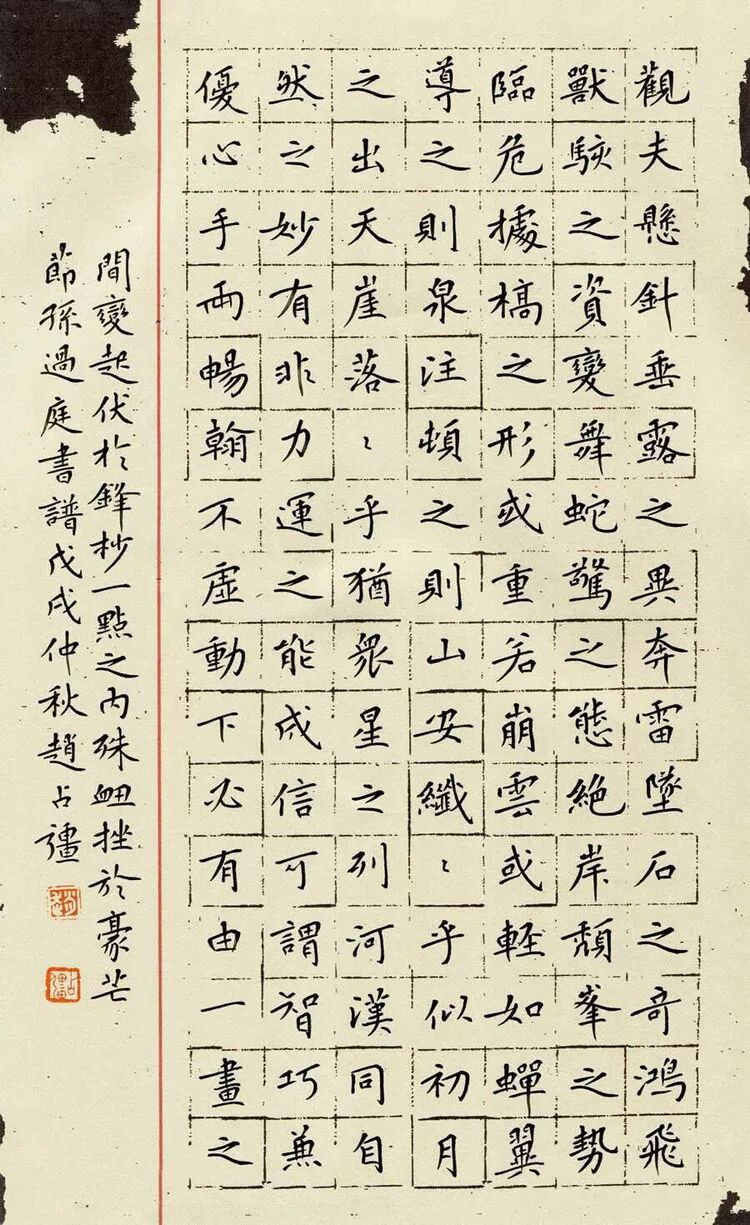 觀夫懸針垂露之異奔雷墜石之奇鴻飛
獸駭之資變舞蛇驚之態絕岸頹峯之勢
臨危據槁之形或重若崩雲或輕如蟬翼
導之則泉注頓之則山安纖〻乎似初月
之出天崖落〻乎猶衆星之列河漢同自
然之妙有非力運之能成信可謂智巧兼
優心手兩暢翰不虛動下必有由一畫之
間變起伏於鋒杪一點之內殊衄挫於豪芒
節孫過庭書譜戊戌仲秋趙占疆